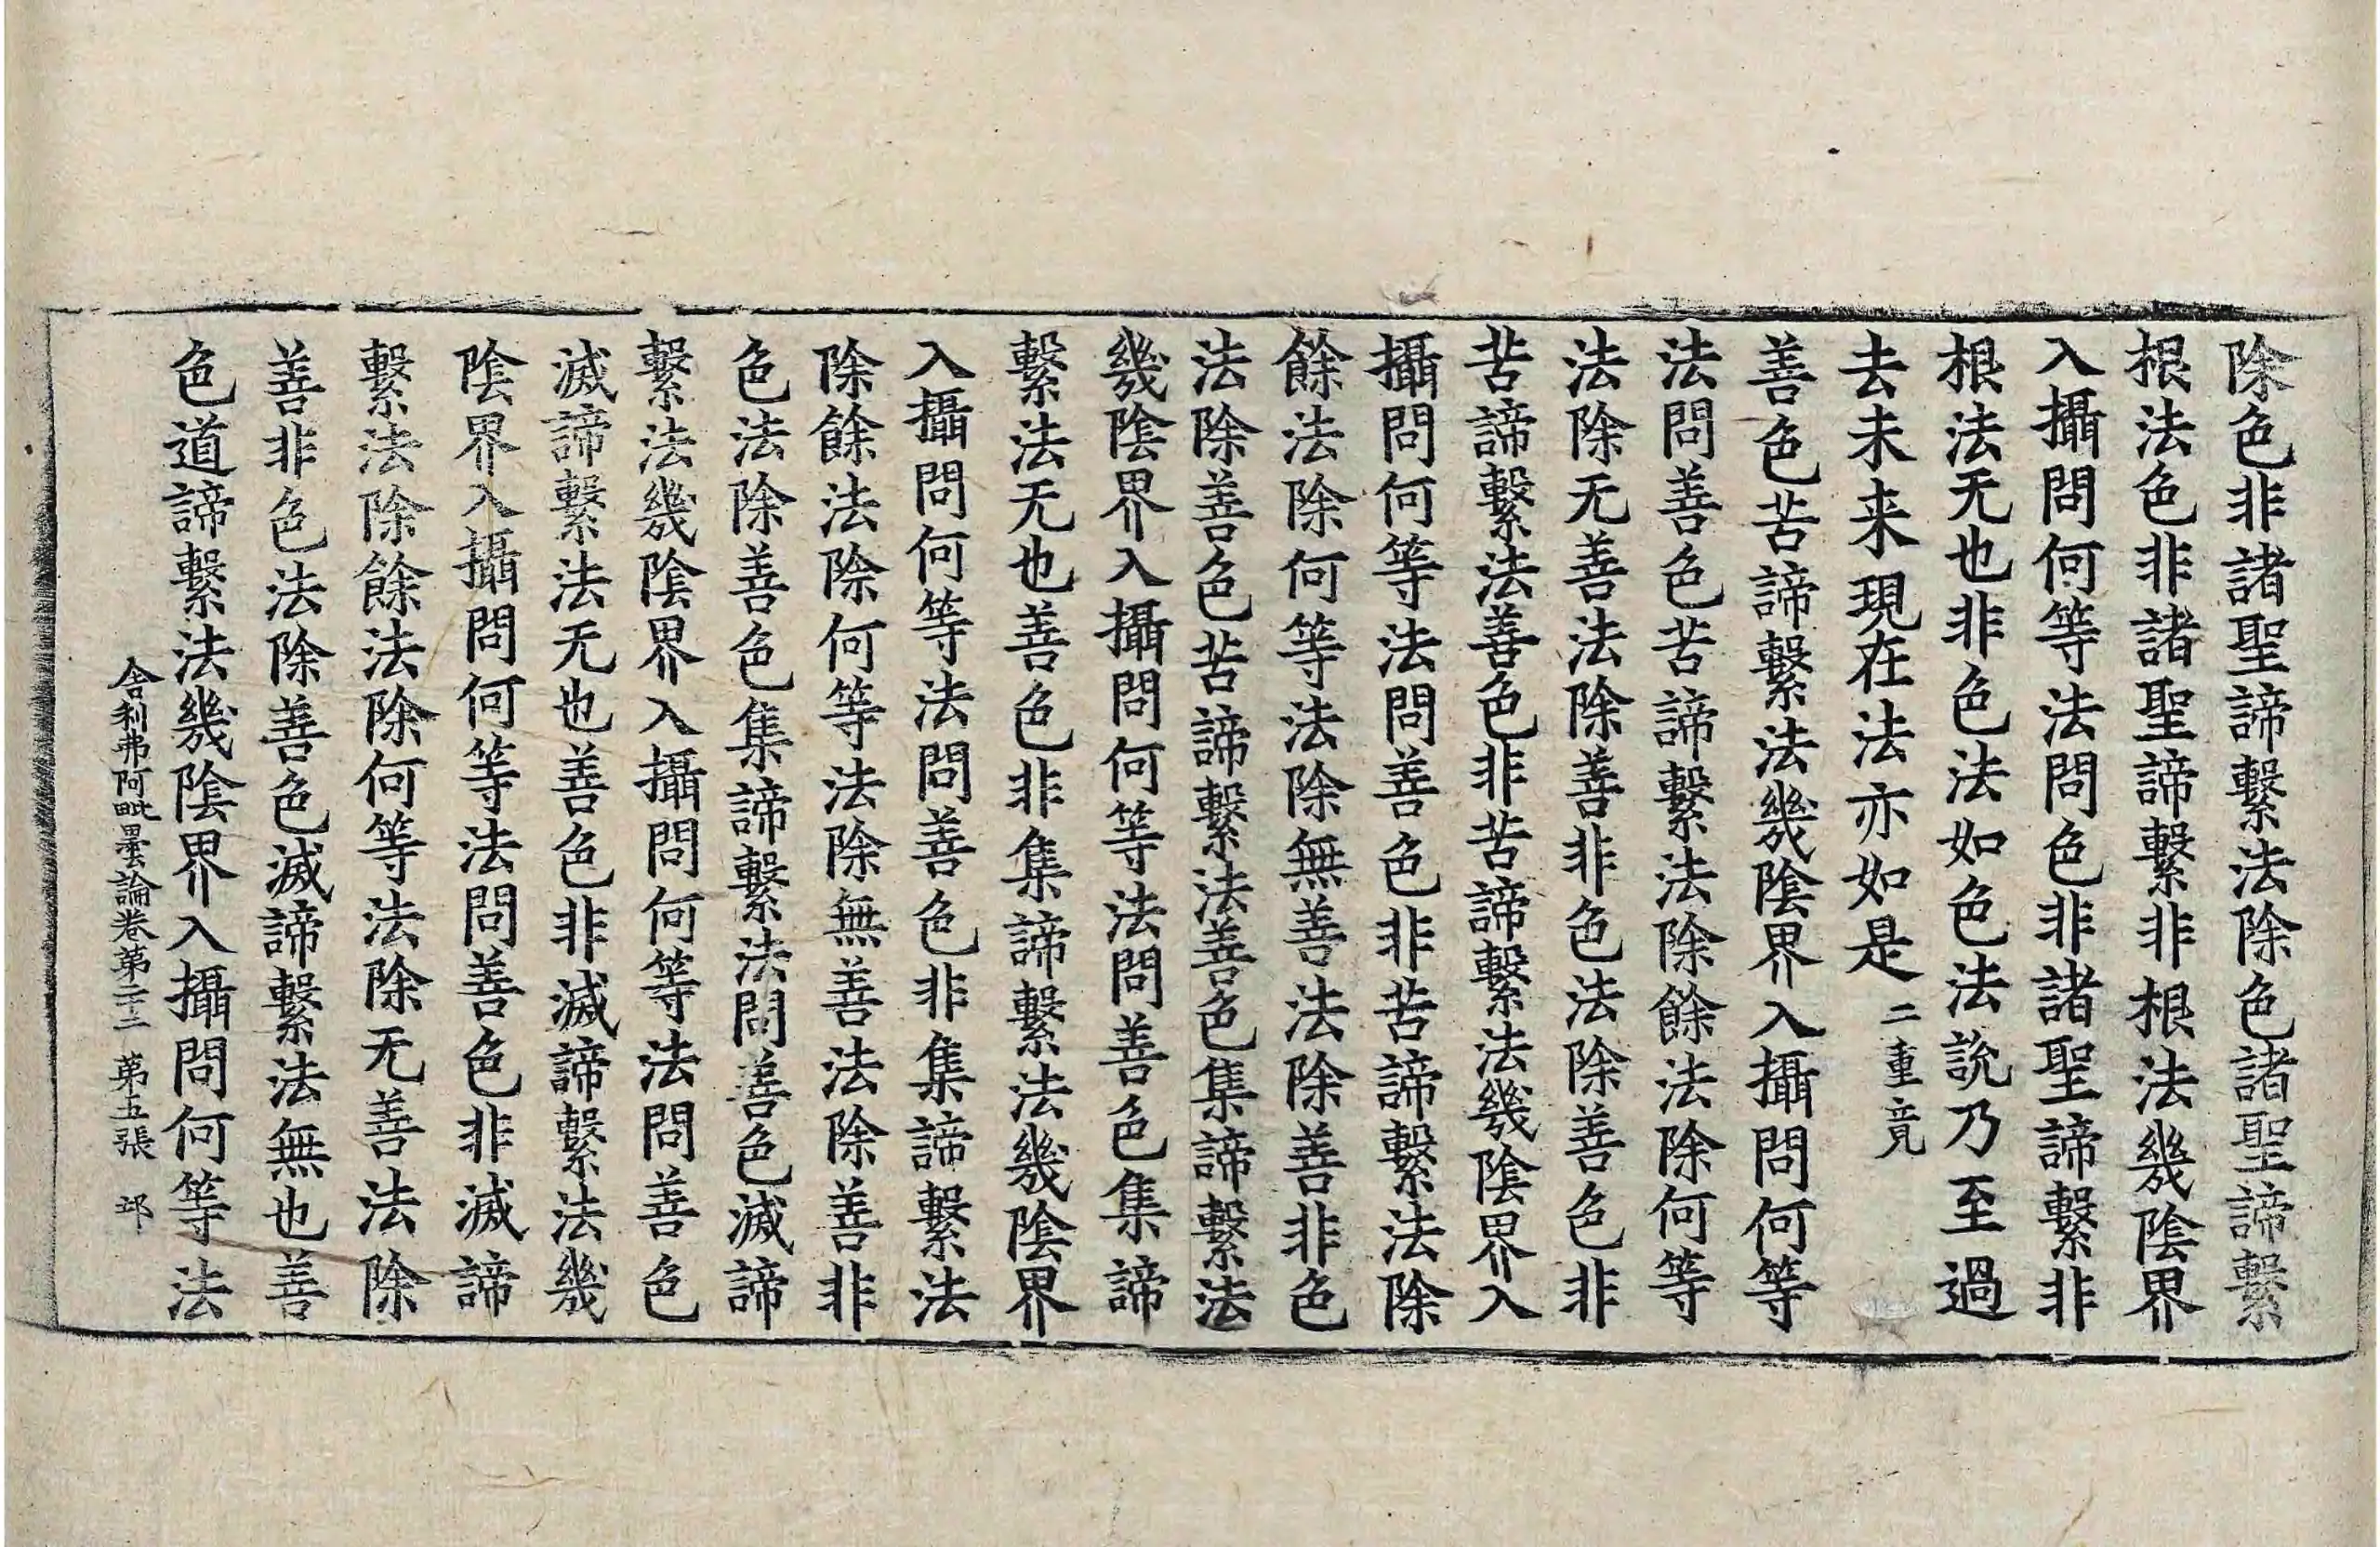 除色非諸聖諦繫法除色諸聖諦繫
根法色非諸聖諦繫非根法幾陰界
入攝問何等法問色非諸聖諦繫非
根法无也非色法如色法說乃至過
去未来現在法亦如是二重竟
善色苦諦繫法幾陰界入攝問何等
法問善色苦諦繫法除餘法除何等
法除无善法除善非色法除善色非
苦諦繫法善色非苦諦繫法幾陰界入
攝問何等法問善色非苦諦繫法除
餘法除何等法除無善法除善非色
法除善色苦諦繫法善色集諦繫法
幾陰界入攝問何等法問善色集諦
繫法无也善色非集諦繫法幾陰界
入攝問何等法問善色非集諦繫法
除餘法除何等法除無善法除善非
色法除善色集諦繫法問善色滅諦
繫法幾陰界入攝問何等法問善色
滅諦繫法无也善色非滅諦繫法幾
陰界入攝問何等法問善色非滅諦
繫法除餘法除何等法除无善法除
善非色法除善色滅諦繫法無也善
色道諦繫法幾陰界入攝問何等法
舍利弗阿毗曇論卷第二十二 第五張